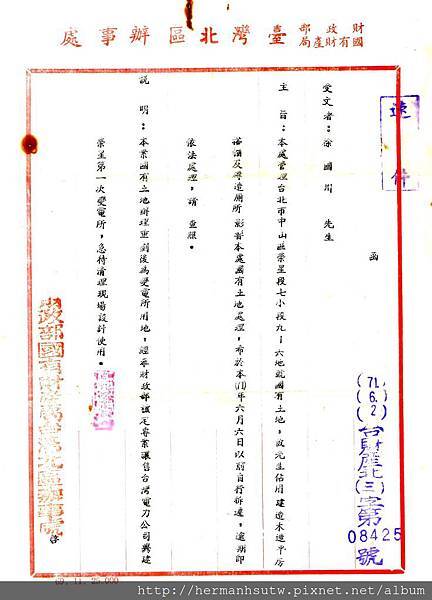 財政部國有財產局臺灣北區辦事處
速件
函
(71. 6. 2) 台財產北(三)字第08425號
受文者：徐國川 先生
主 旨：本處管理台北市中山區榮星段七小段九一六地號國有土地，政先生佔用建造木造平房
諸酒及厚造廁所影響本處國有土地處理，希於本(71)年六月六日以前自行拆遷，逾期即
依法處理，請 查照。
說 明：本案國有土地辦理重劃後為變電所用地，經奉財政部核定專案讓售台灣電力公司興建
榮星第一次變電所，急待清理現場設計使用。
財政部國有財產局台灣北區辦事處 啓
69. 11. 25.000
http://hermanhsutw.pixnet.net/album